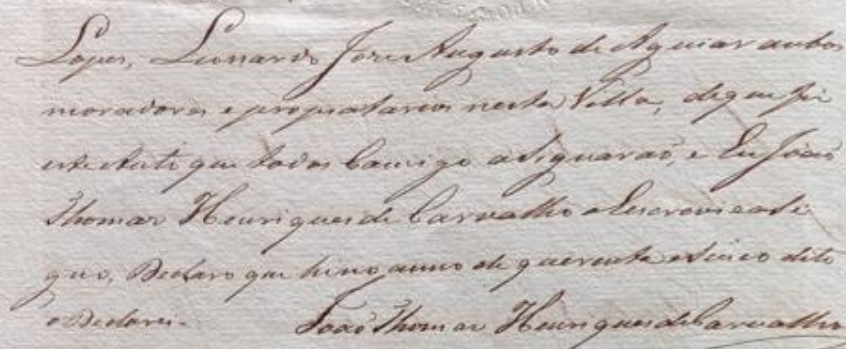 Lopes, Leonardo Joze Augusto de Aguiar ambos
moradores e propriatarios nesta Villa, de que fiz
este Auto que todos Comigo asignaraõ, e Eu Joaõ
Thomas Henriques de Carvalho o Escrevi e asi
gno, Declaro que hé no anno de quarenta e sinco dito
o Declarei.
Joaõ Thomas Henriques de Carvalho